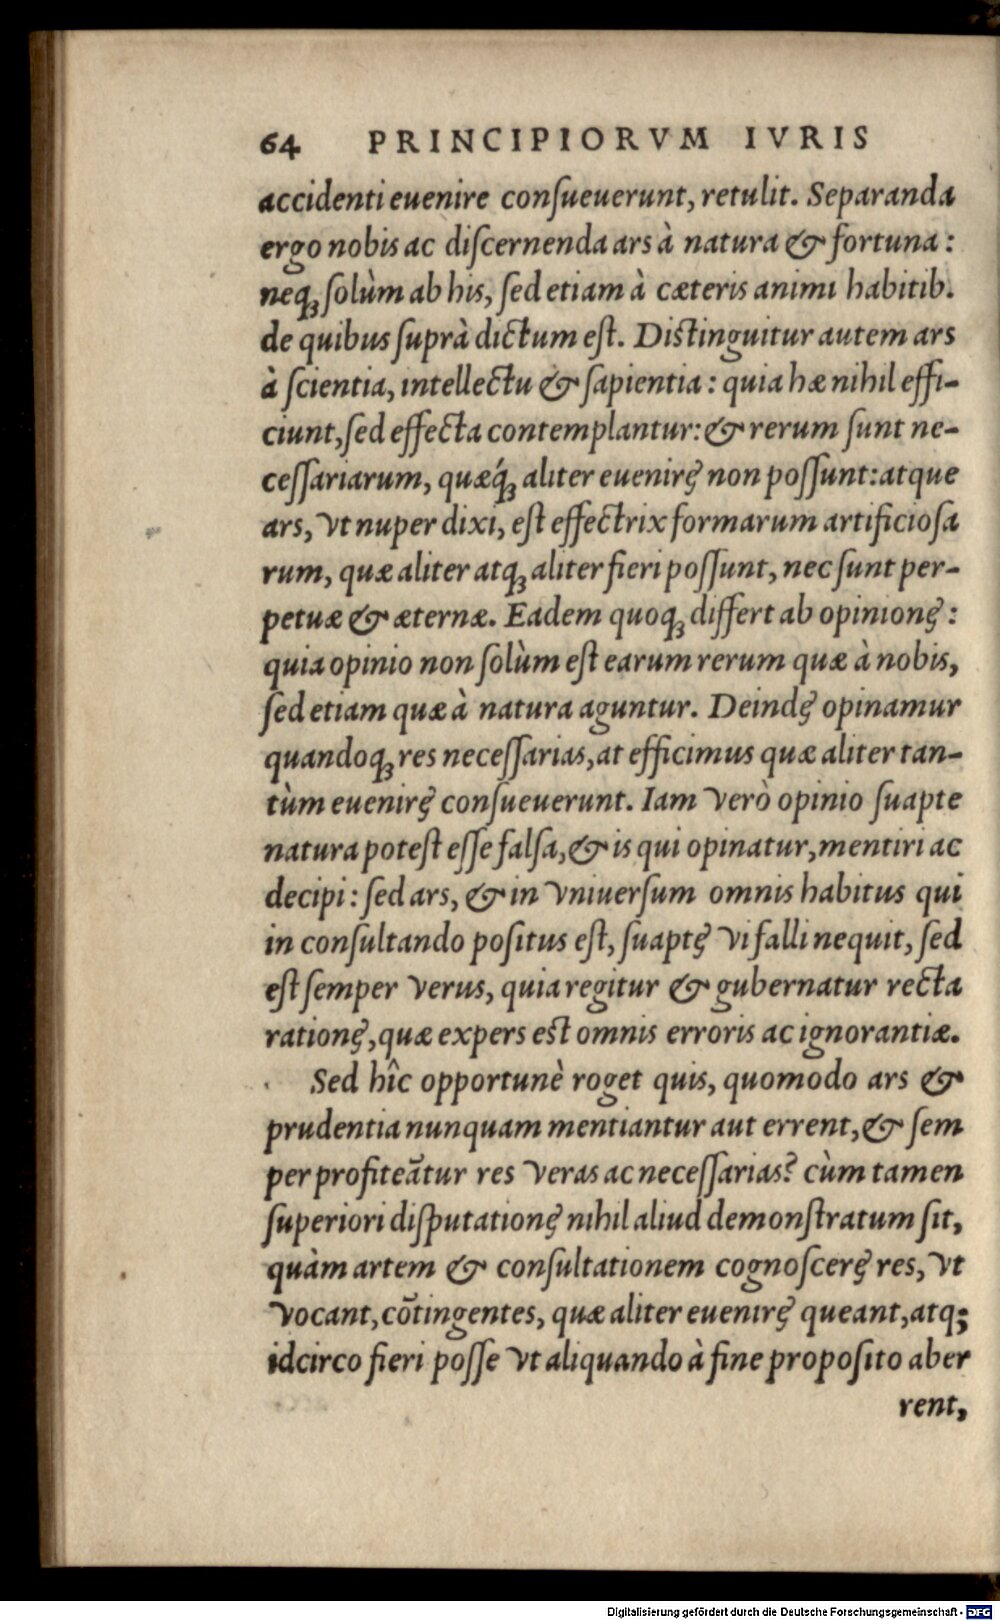 64 PRINCIPIORVM IVRIS
accidenti euenire conſueuerunt, retulit. Separanda
ergo nobis ac diſcernenda ars à natura & fortuna:
neqꝫ ſolùm ab his, ſed etiam à cæteris animi habitib.
de quibus ſuprà dictum eſt. Diſtinguitur autem ars
à ſcientia, intellectu & ſapientia: quia hæ nihil effi-
ciunt, ſed effecta contemplantur: & rerum ſunt ne-
ceſſariarum, quæq́ꝫ aliter euenire non poſſunt: atque
ars, vt nuper dixi, eſt effectrix formarum artificioſa
rum, quæ aliter atqꝫ aliter fieri poſſunt, nec ſunt per-
petuæ & æternæ. Eadem quoqꝫ differt ab opinione:
quia opinio non ſolùm eſt earum rerum quæ à nobis,
ſed etiam quæ à natura aguntur. Deinde opinamur
quandoqꝫ res neceſſarias, at efficimus quæ aliter tan-
tùm euenire conſueuerunt. Iam verò opinio ſuapte
natura poteſt eſſe falſa, & is qui opinatur, mentiri ac
decipi: ſed ars, & in vniuerſum omnis habitus qui
in conſultando poſitus eſt, ſuapte vi falli nequit, ſed
eſt ſemper verus, quia regitur & gubernatur recta
ratione, quæ expers eſt omnis erroris ac ignorantiæ.
Sed hîc opportunè roget quis, quomodo ars &
prudentia nunquam mentiantur aut errent, & ſem
per profiteãtur res veras ac neceſſarias? cùm tamen
ſuperiori diſputatione nihil aliud demonſtratum ſit,
quàm artem & conſultationem cognoſcere res, vt
vocant, cõtingentes, quæ aliter euenire queant, atq;
idcirco fieri poſſe vt aliquando à fine propoſito aber
rent,
Digitalisierung gefördert durch die Deutsche Forschungsgemeinschaft - DFG